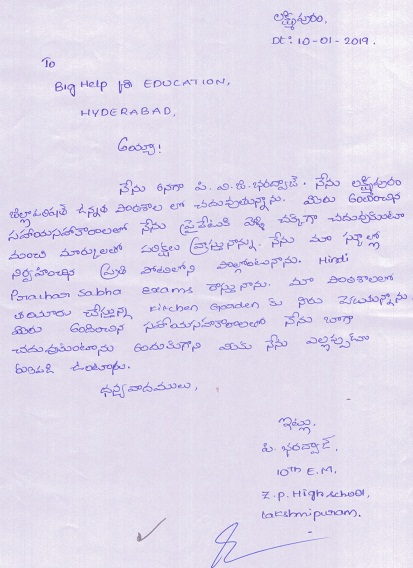 లక్ష్మీపురం,
Dt: 10-01-2019.
To
Big Help for EDUCATION,
HYDERABAD,
అయ్యా!
నేను అనగా పి. వి.జి. భరద్వాజ్. నేను లక్ష్మీపురం
జిల్లాపరిషత్ ఉన్నత పాఠశాల లో చదువుతున్నాను. మీరు అందించిన
సహాయసహకారాలతో నేను ప్రైవేటుకి వెళ్లి చక్కగా చదువుకుంటూ
మంచి మార్కులతో పరీక్షలు వ్రాస్తున్నాను. నేను మా స్కూల్లో
నిర్వహించిన ప్రతి పోటీలోని పాల్గొంటున్నాను. Hindi
Prachar sabha exams రాస్తున్నాను. మా పాఠశాలలో
తయారు చేస్తున్న Kitchen Gaaden కు నీరు పోయుచున్నాను.
మీరు అందించిన సహాయసహకారాలతో నేను బాగా
చదువుకుంటాను అందుతుగాని మీకు నేను ఎల్లప్పుడూ
ఉంటాను.
ధన్యవాదములు,
ఇట్లు,
పి. భరద్వాజ్,
10th E.M,
Z.P. High school,
Lakshmipuram.